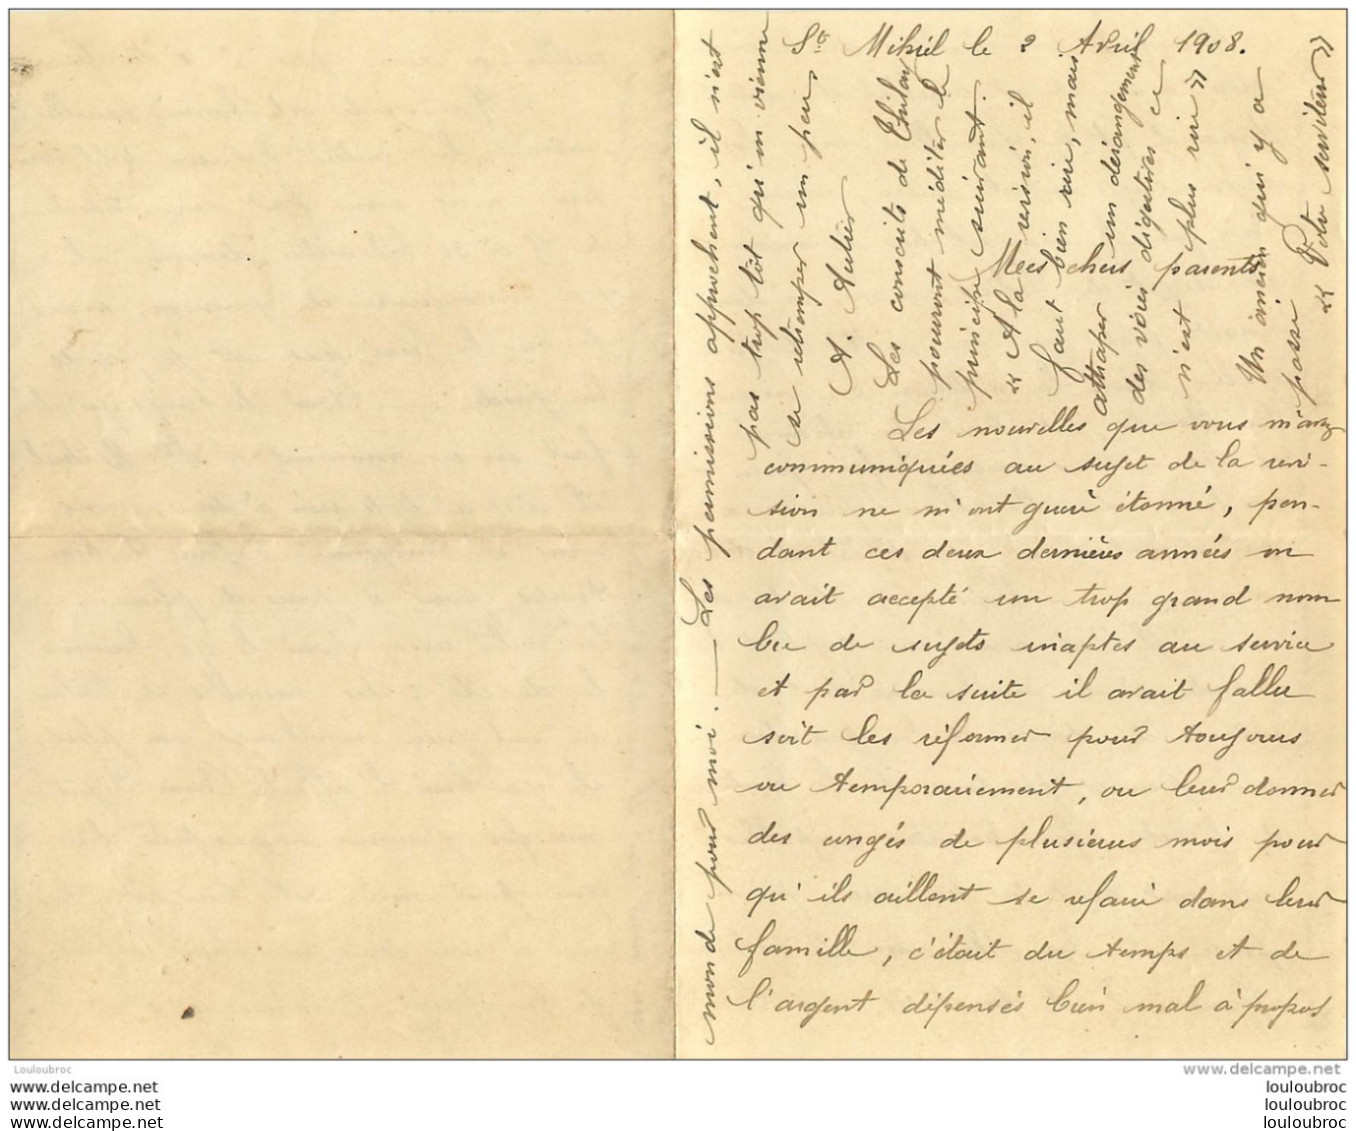 St Mihiel le 2 Avril 1908.
Mes chers parents
Les nouvelles que vous m'avez
communiquées au sujet de la revi-
sion ne m'ont guère étonné, pen-
dant ces deux dernières années on
avait accepté un trop grand nom
bre de sujets inaptes au service
et par la suite il avait fallu
soit les réformer pour toujours
ou temporairement, ou leur donner
des congés de plusieurs mois pour
qu'ils aillent se refaire dans leur
famille, c'était du temps et de
l'argent dépensés bien mal à propos
monde pour moi. — Les permissions approchent, il n'est
pas trop tôt qu'on vienne
se retremper un peu,
A. Autier
Les conscrits de Thilay
pourront méditer le
principe suivant.
« A la revision, il
faut bien rire, mais
attraper un dérangement
des voies digestives ce
n'est plus rire »
Un ancien qui y a
passé
« Votre serviteur »
Louloubroc
www.delcampe.net
www.delcampe.net
www.delcampe.net
www.delcampe.net
louloubroc
louloubroc
louloubroc